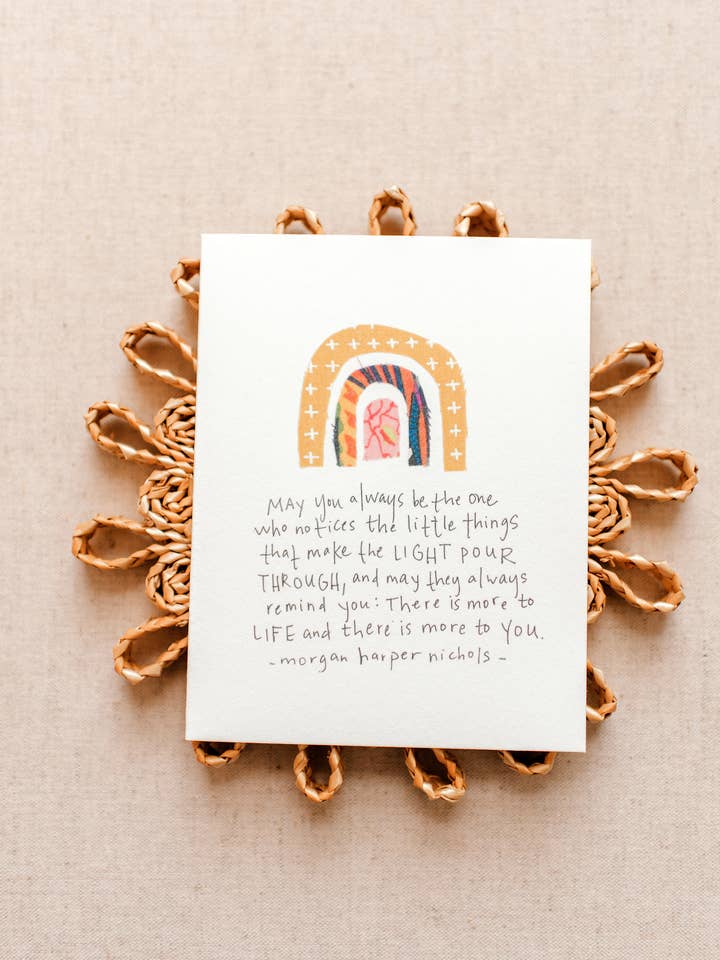 MAY you always be the one
who notices the little things
that make the LIGHT POUR
THROUGH, and may they always
remind you: There is more to
LIFE and there is more to YOU.
- morgan harper nichols -